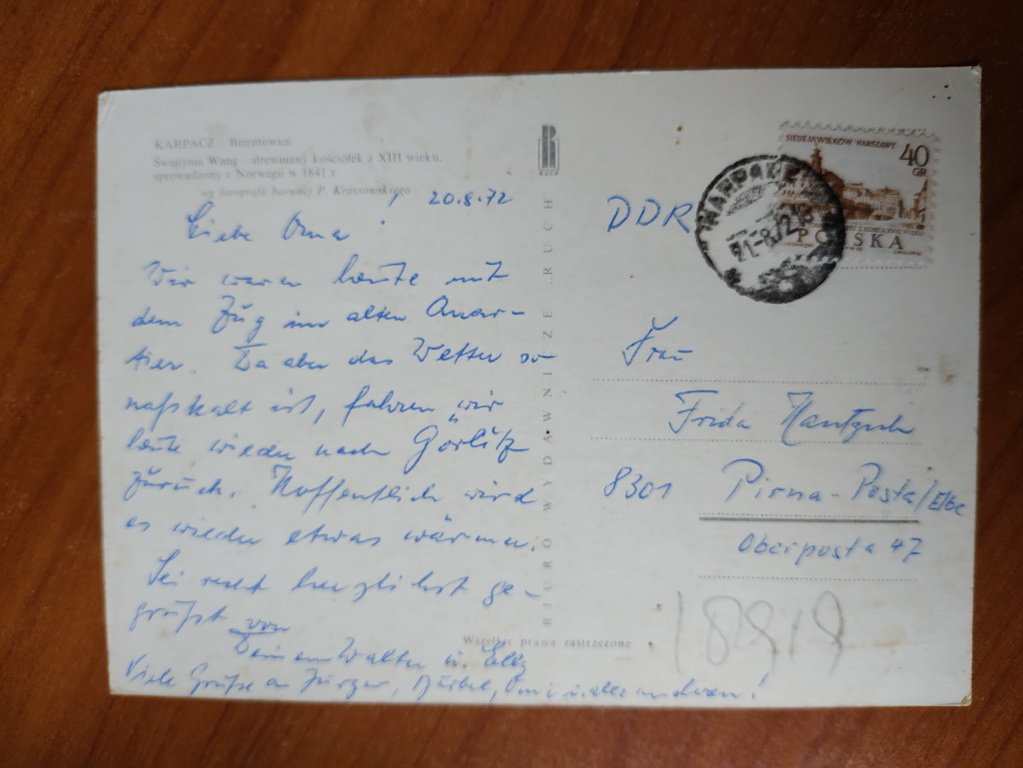 KARPACZ Bierutowice
Świątynia Wang - drewniany kościółek z XIII wieku,
sprowadzony z Norwegii w 1841 r.
wg fotografii barwnej P. Krassowskiego
20.8.72
Liebe Oma!
Wir waren heute mit
dem Zug im alten Quar-
tier. Da aber das Wetter so
naßkalt ist, fahren wir
heute wieder nach Görlitz
zurück. Hoffentlich wird
es wieder etwas wärmer.
Sei recht herzlichst ge-
grüßt von
Deinem Walter u. Elly
Viele Grüße an Jürgen, Bärbel, u. alle anderen!
BIURO WYDAWNICZE RUCH
RUCH
Wszelkie prawa zastrzeżone
SIEDEM WIEKÓW WARSZAWY
40
GR
POLSKA
KARPACZ
21-8.72
DDR
Frau
Frida
8301 Pirna-Posta/Elbe
Oberposta 47
18919